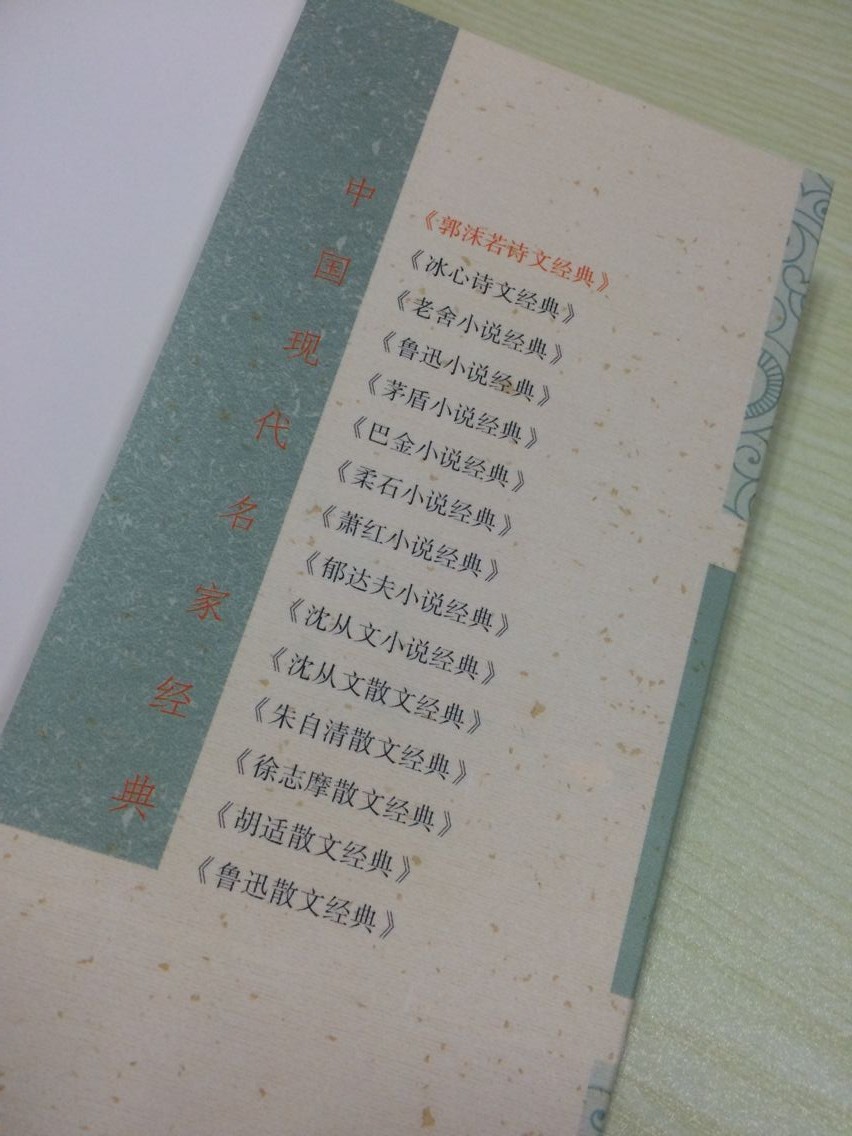 中国现代名家经典
《郭沫若诗文经典》
《冰心诗文经典》
《老舍小说经典》
《鲁迅小说经典》
《茅盾小说经典》
《巴金小说经典》
《柔石小说经典》
《萧红小说经典》
《郁达夫小说经典》
《沈从文小说经典》
《沈从文散文经典》
《朱自清散文经典》
《徐志摩散文经典》
《胡适散文经典》
《鲁迅散文经典》